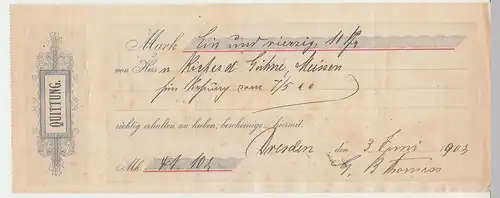 QUITTUNG.
Mark Ein und vierzig, 10 Pfg
von Herrn Richard Kühne, Meissen
für vom 7/5 a c
richtig erhalten zu haben, bescheinige hiermit.
Dresden den 3 Juni 1903
Mk. 41. 10
Thomas